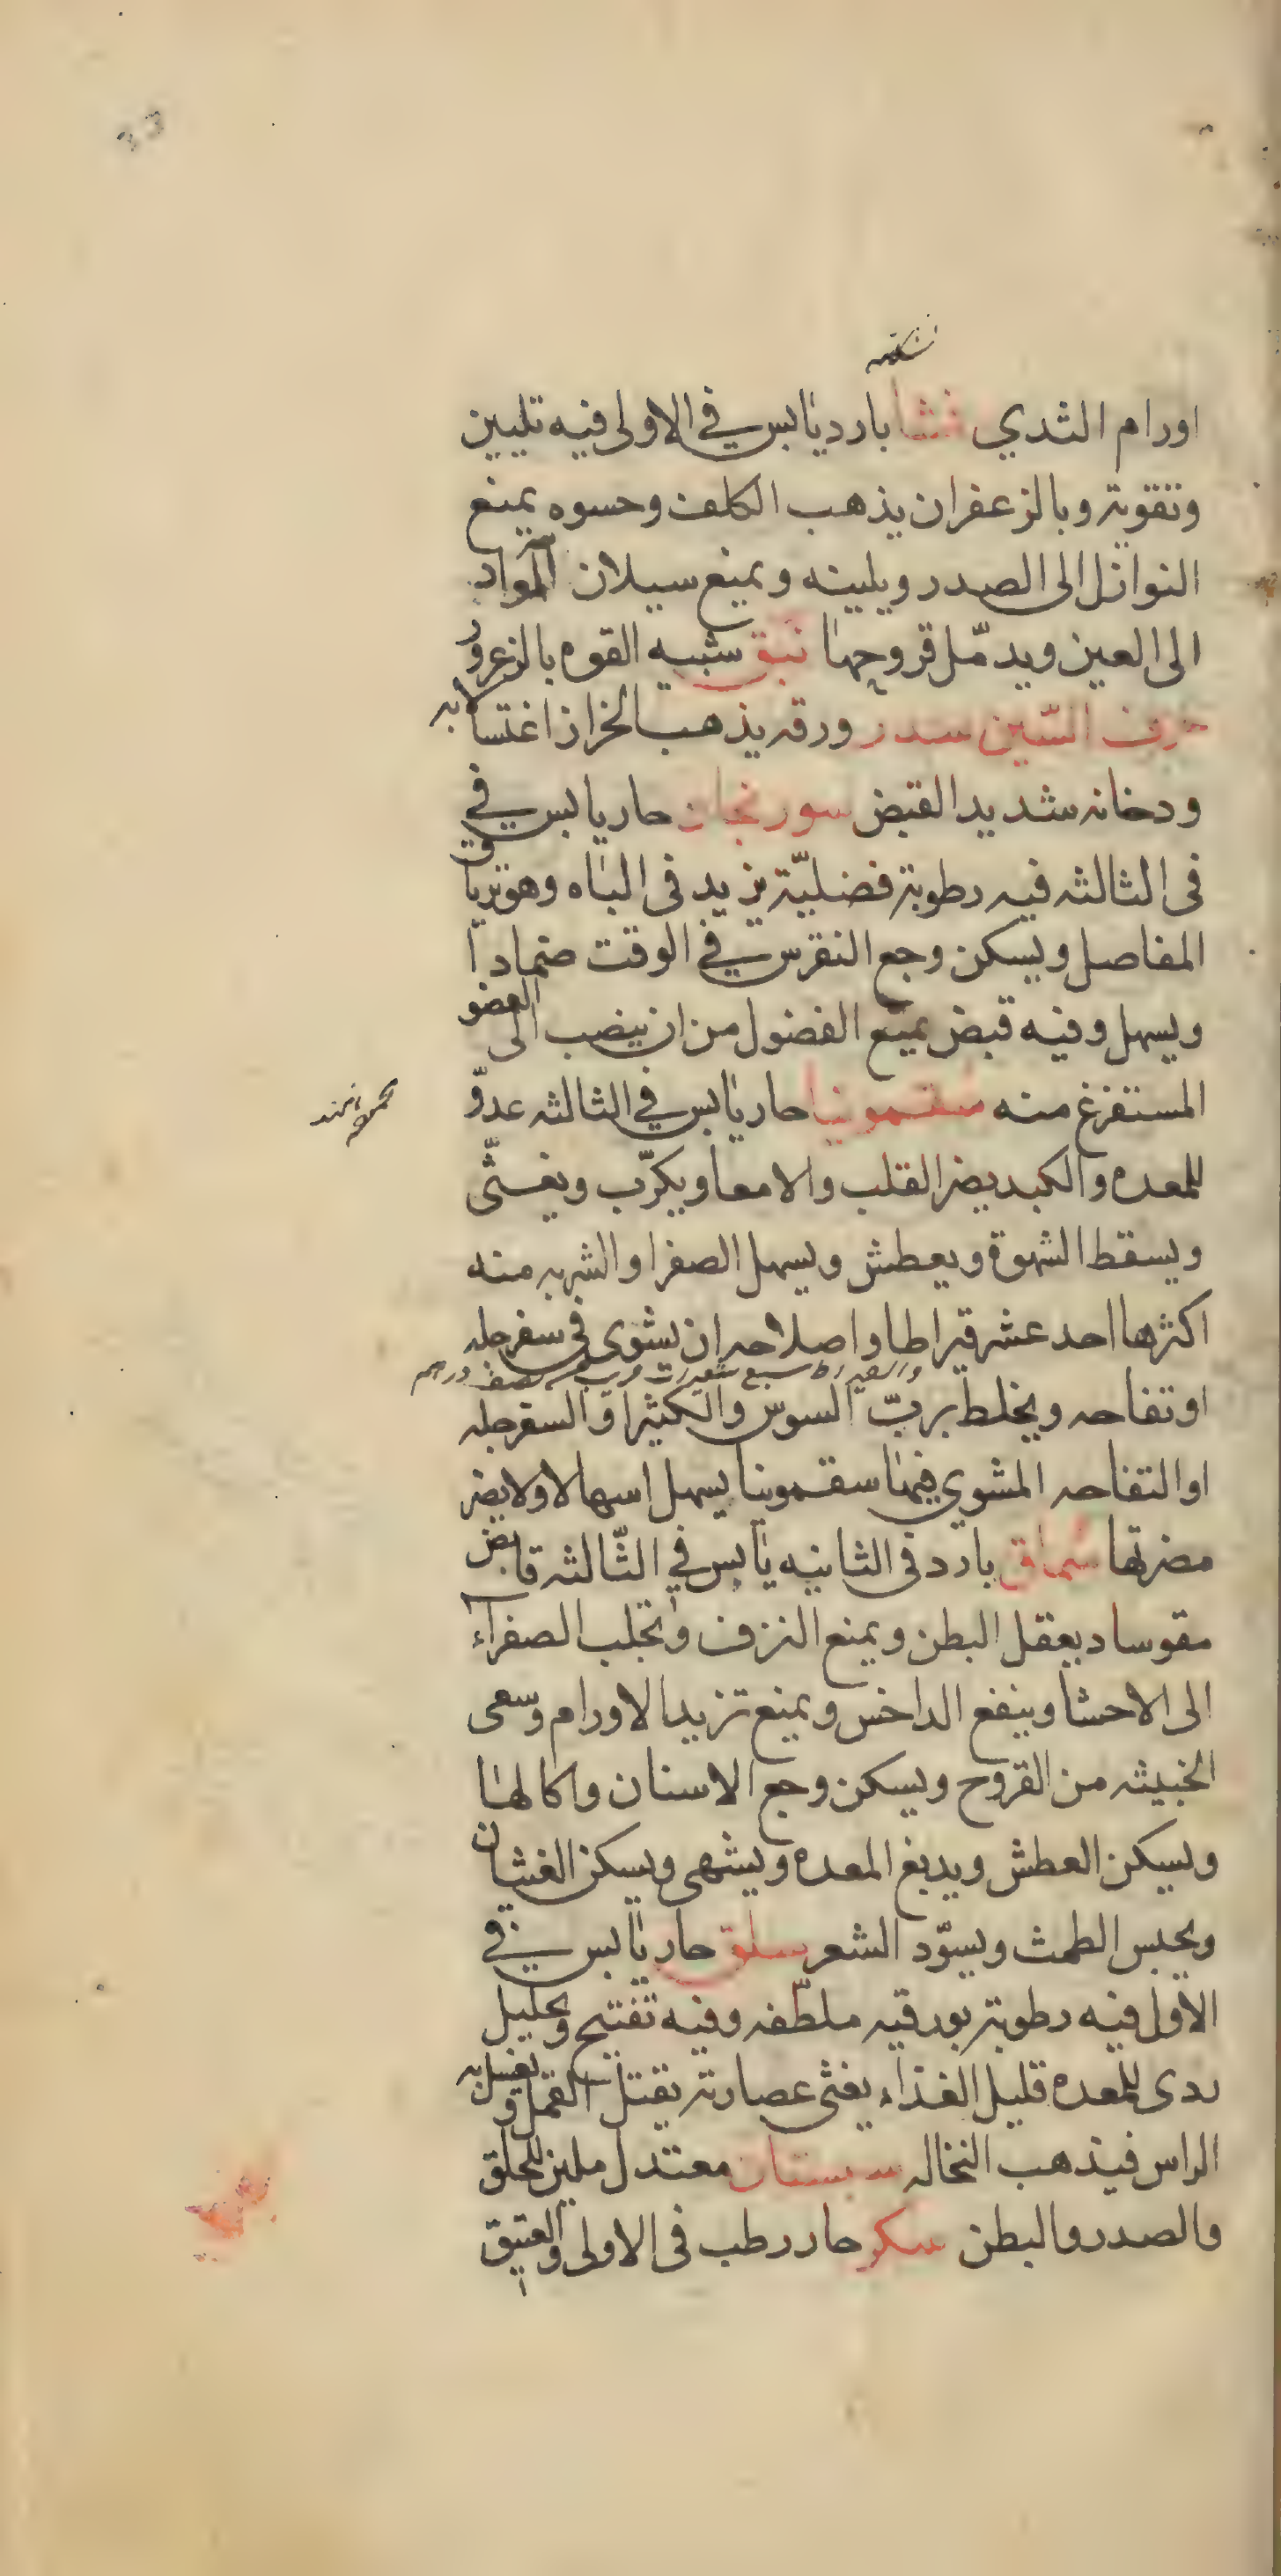 اورام الثدي نشا بارد يابس في الاولى فيه تليين
وتقوية وبالزعفران يذهب الكلف وحسوه يمنع
النوازل الى الصدر ويلينه ويمنع سيلان المواد
الى العين ويدمّل قروحها نبق شبيه القوه بالزعرور
حرف السّين سدر ورقه يذهب الحزاز اغتسالا به
ودخانه شديد القبض سورنجان حار يابس في
فى الثالثه فيه رطوبة فضليّة يزيد فى الباه وهو ترياق
المفاصل ويسكن وجع النقرس في الوقت ضمادا
ويسهل وفيه قبض يمنع الفضول من ان ينصب الى العضو
المستفرغ منه سقمونيا حار يابس في الثالثه عدوّ
للمعده والكبد يضر القلب والامعا ويكرّب ويغثّى
ويسقط الشهوة ويعطش ويسهل الصفرا والشربه منه
اكثرها احد عشر قيراطا واصلاحه ان يشوى في سفرجله
والقيراط سبع شعيرات نصف درهم
او تفاحه ويخلط بربّ السوس والكثيرا والسفرجله
او التفاحه المشوي فيها سقمونيا يسهل اسهالا ولا يضر
مضرتها سماق بارد فى الثانيه يابس في الثّالثه قابض
مقو ساد يعقل البطن ويمنع النزف وتحلب الصفراء
الى الاحشا وينفع الداخس ويمنع تزيد الاورام وسعى
الخبيثه من القروح ويسكن وجع الاسنان واكالها
ويسكن العطش ويدبغ المعده ويشهى ويسكن الغشان
ويحبس الطمث ويسوّد الشعر سلق حار يابس في
الاول فيه رطوبة بورقيه ملطّفه وفيه تفتيح وتحليل
ردى للمعده قليل الغذاء يغثى عصارته يقتل القمل ويغسل به
الراس فيذهب النخاله سبستان معتدل ملين للحلق
والصدر والبطن سكر حار رطب فى الاولى والعتيق